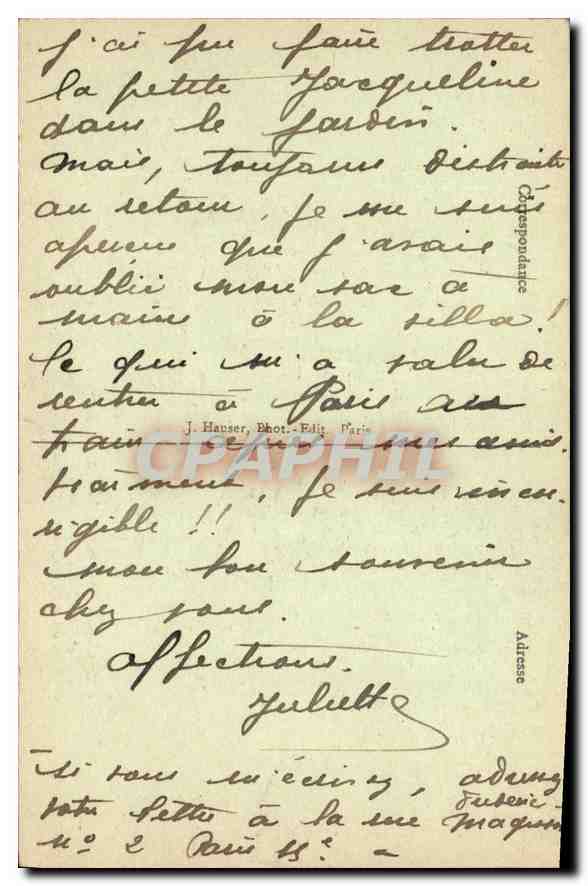 j'ai pu faire trotter
la petite Jacqueline
dans le jardin.
Mais, toujours distraite
au retour, je me suis
aperçue que j'avais
oublié mon sac à
main à la villa!
Ce qui m'a valu de
rentrer à Paris
train après mes amis.
Vraiment, je suis incor-
rigible!!
mon bon souvenir
chez vous.
Affections.
Juliette
si vous m'écrivez, adressez
votre lettre à la rue Frédéric
Magisson
No 2 Paris 15e
Correspondance
J. Hauser, Phot.-Edit. Paris
CPAPHIL
Adresse